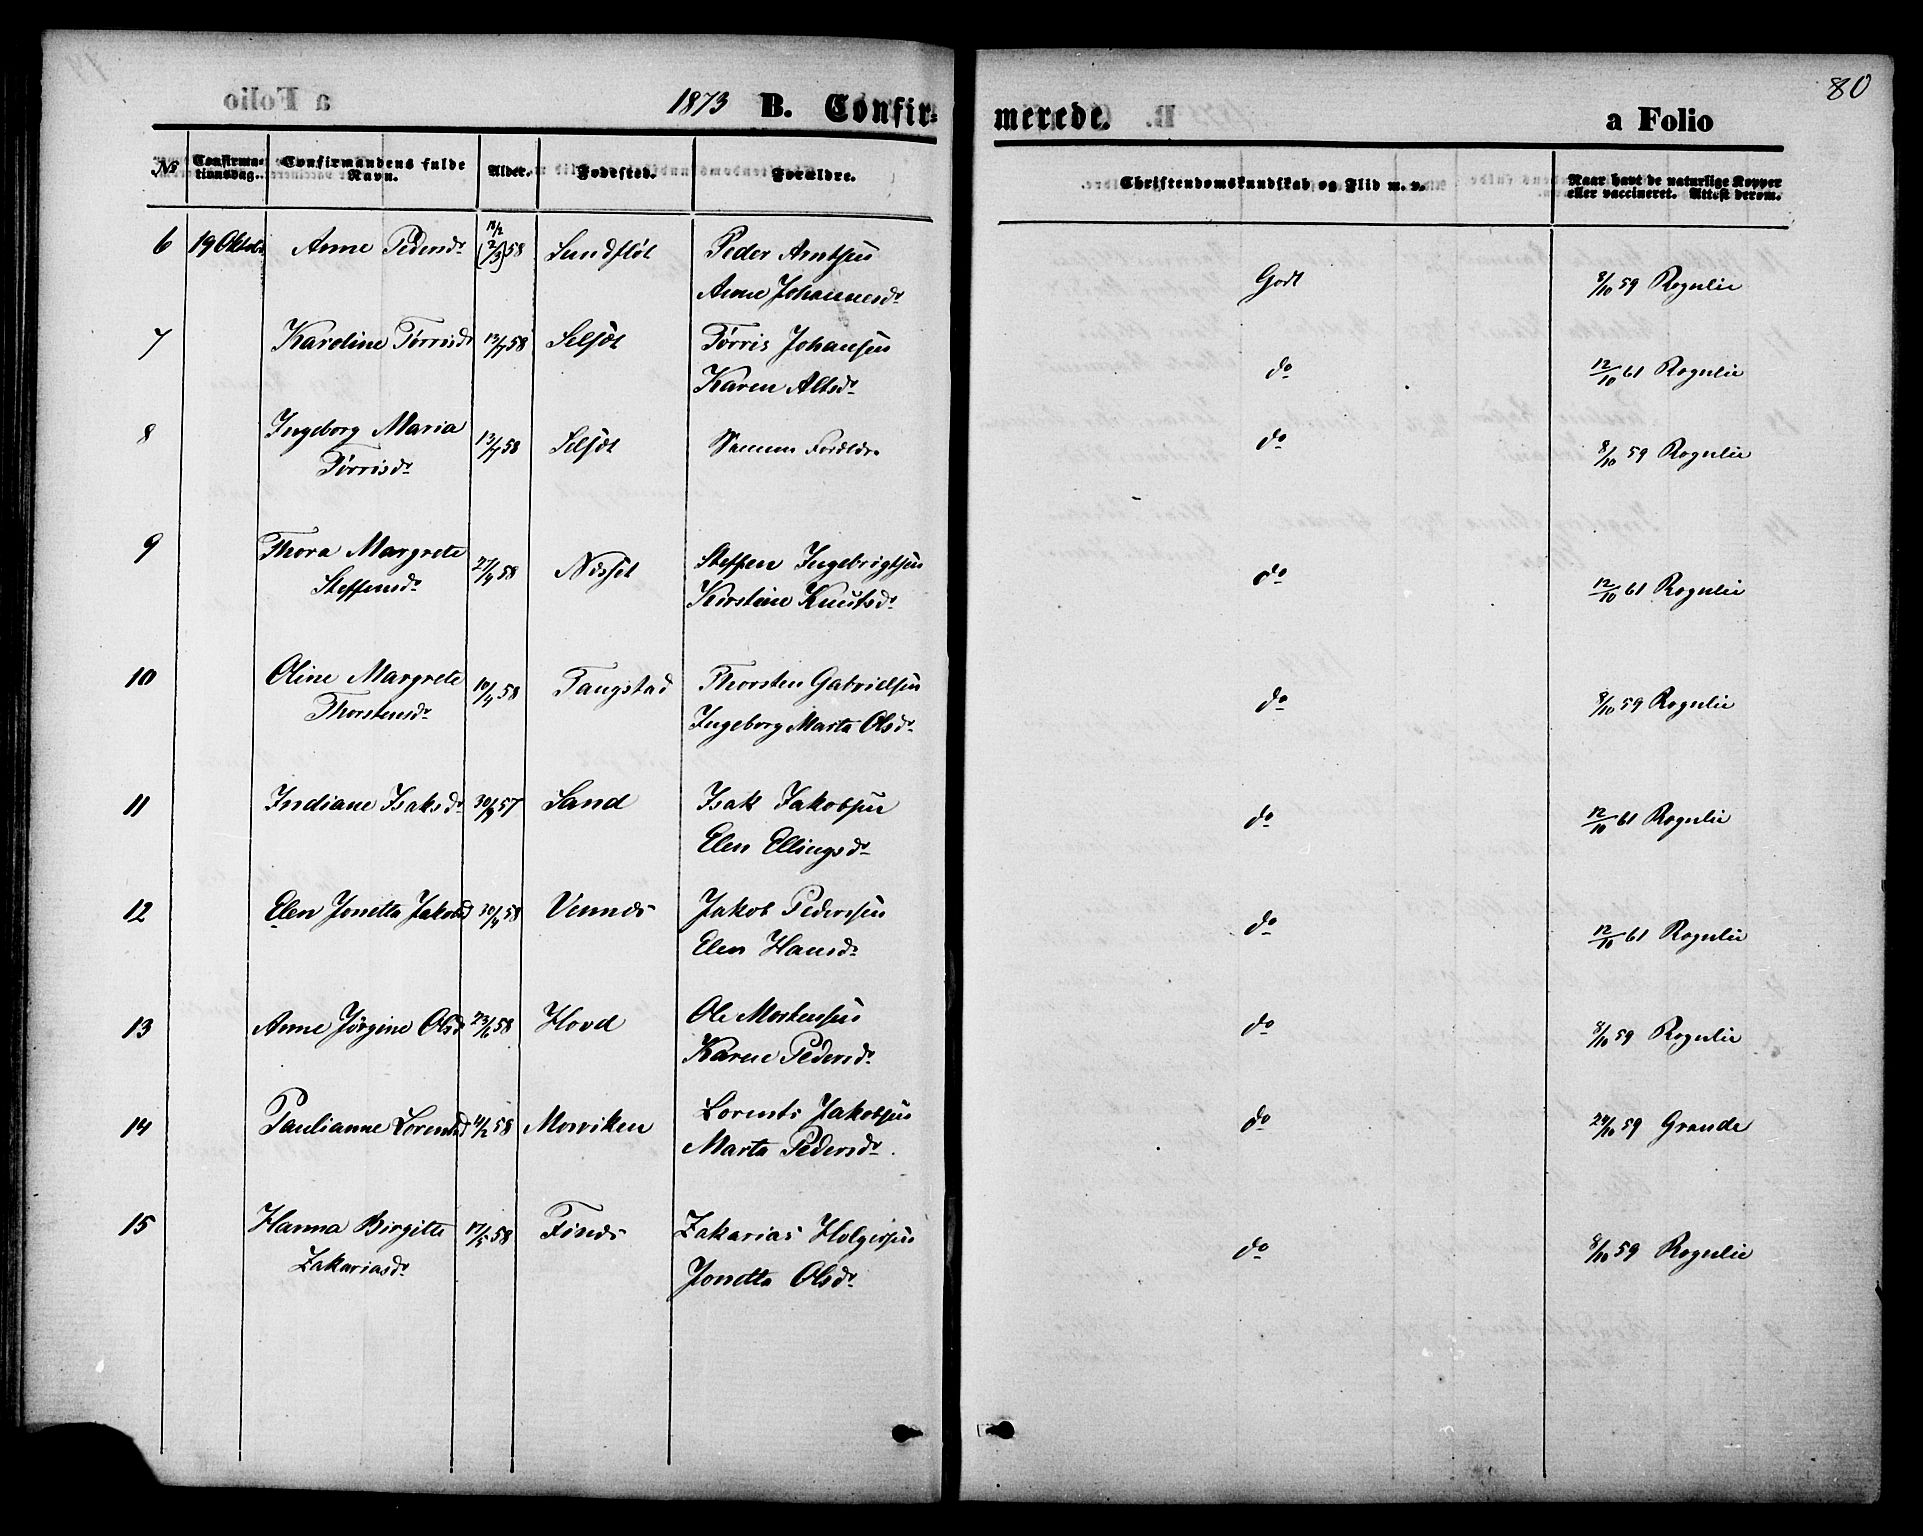 1873 B. Confirmerede. a Folio 80
No Confirmationsdag. Confirmandens fulde Navn. Alder. Fødested. Forældre. Christendomskundskab og Flid m. v. Naar havt de naturlige Kopper eller vaccineret. Attest derom.
6 19 Oktob Anne Pedersdr 58 Peder Arntsen
Anne Johannesdr Godt 8/10 59 Rognlie
7 Karoline Tørrisdr 13/7 58 Selsøt Tørris Johansen
Karen Altsdr do 12/10 61 Rognlie
8 Ingeborg Maria 13/7 58 Selsøt Samme Forældre
Tørrisdr do 8/10 59 Rognlie
9 Thora Margrete 27/9 58 Steffen Ingebrigtsen
Steffensdr Kirstine Knutsdr do 12/10 61 Rognlie
10 Oline Margrete 10/4 58 Tangstad Thorsten Gabrielsen
Thorstensdr Ingeborg Marta Olsdr do 8/10 59 Rognlie
11 Indiane Isaksdr 30/9 57 Sand Isak Jakobsen
Elen Ellingsdr do 12/10 61 Rognlie
12 Elen Jonetta Jakobsd 30/4 58 Vennes Jakob Pedersen
Elen Hansdr do 12/10 61 Rognlie
13 Anne Jørgine Olsd 23/6 58 Hovd Ole Mortensen
Karen Pedersdr do 8/10 59 Rognlie
14 Paulianne Lorentsd 11/2 58 Morviken Lorents Jakobsen
Marta Pedersdr do 24/10 59 Grande
15 Hanna Birgitte 17/5 58 Finds Zakarias Holgersen
Zakariasdr Jonetta Olsdr do 8/10 59 Rognlie